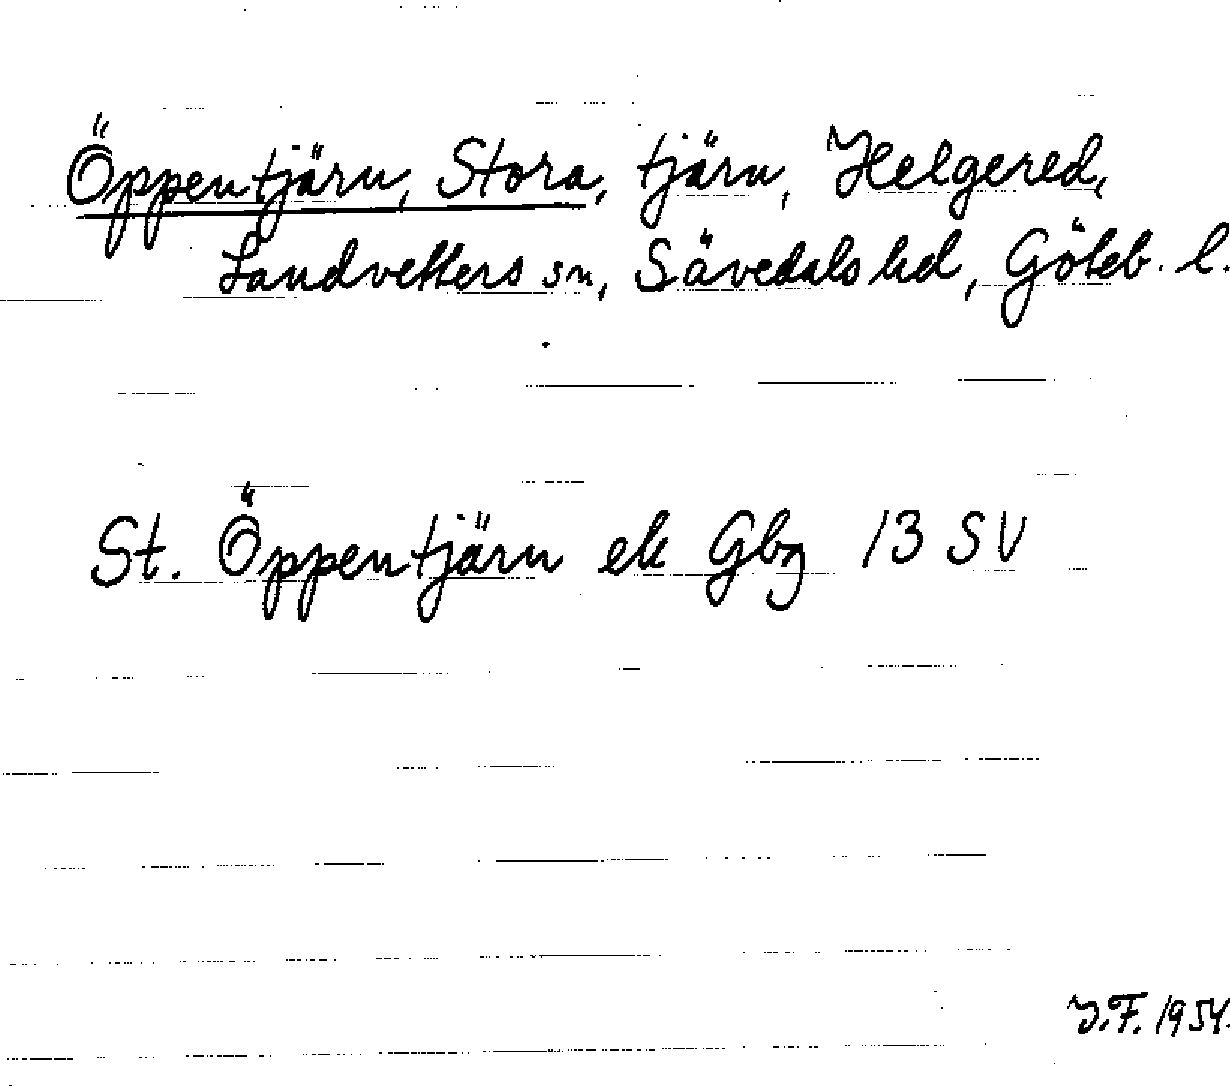 Öppentjärn, Stora, tjärn, Helgered,
Landvetters sn, Sävedals hd, Göteb. l.
St. Öppentjärn ek Gbg 13 SV
J.F. 1954.